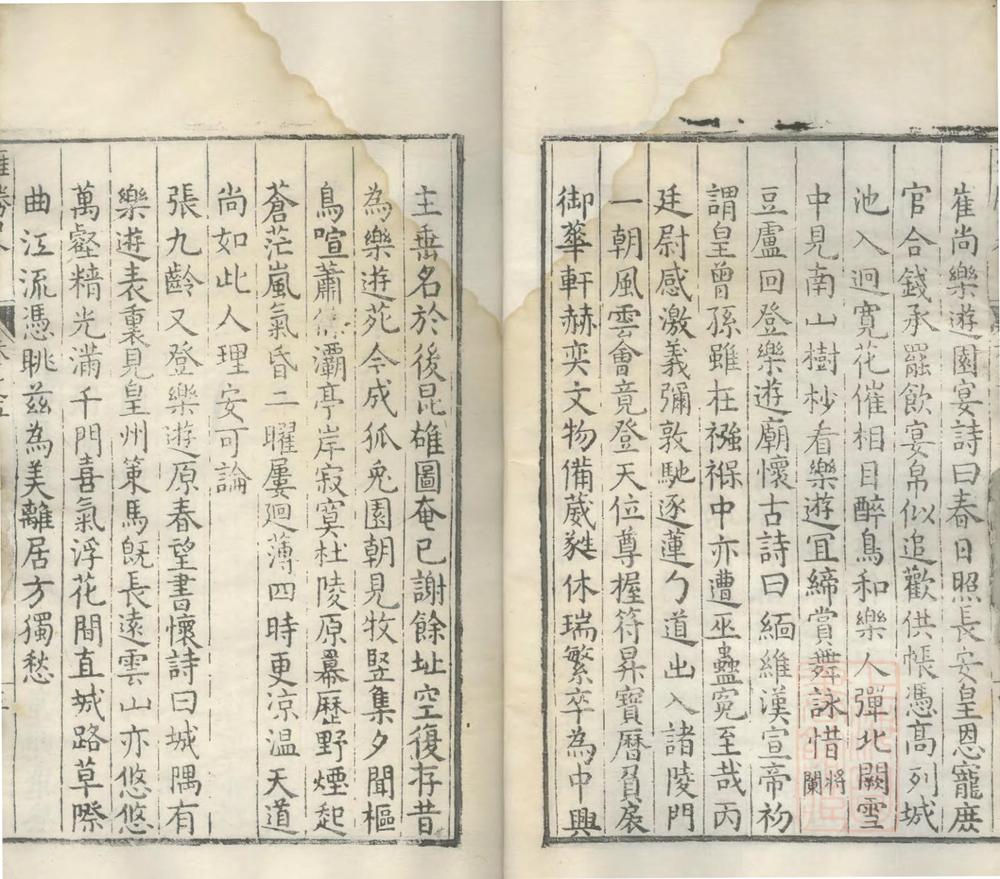 崔尚樂遊園宴詩曰春日照長安皇恩寵庶
官合錢承罷飲宴帛似追歡供帳憑高列城
池入迥寬花催相目醉鳥和樂人彈北闕雪
中見南山樹杪看樂遊宜締賞舞詠惜將闌
豆盧回登樂遊廟懷古詩曰緬維漢宣帝初
謂皇曾孫雖在襁褓中亦遭巫蠱寃至哉丙
廷尉感激義彌敦馳逐蓮勺道出入諸陵門
一朝風雲會竟登天位尊握符昇寶曆負扆
御華軒赫奕文物備葳蕤休瑞繁卒為中興
主垂名於後昆雄圖奄已謝餘址空復存昔
為樂遊苑今成狐兎園朝見牧竪集夕聞樞
鳥喧蕭條灞亭岸寂寞杜陵原羃歷野煙起
蒼茫嵐氣昏二曜屢廻薄四時更凉温天道
尚如此人理安可論
張九齡又登樂遊原春望書懷詩曰城隅有
樂遊表裏見皇州策馬旣長遠雲山亦悠悠
萬壑精光滿千門喜氣浮花間直城路草際
曲江流憑眺兹為美離居方獨愁